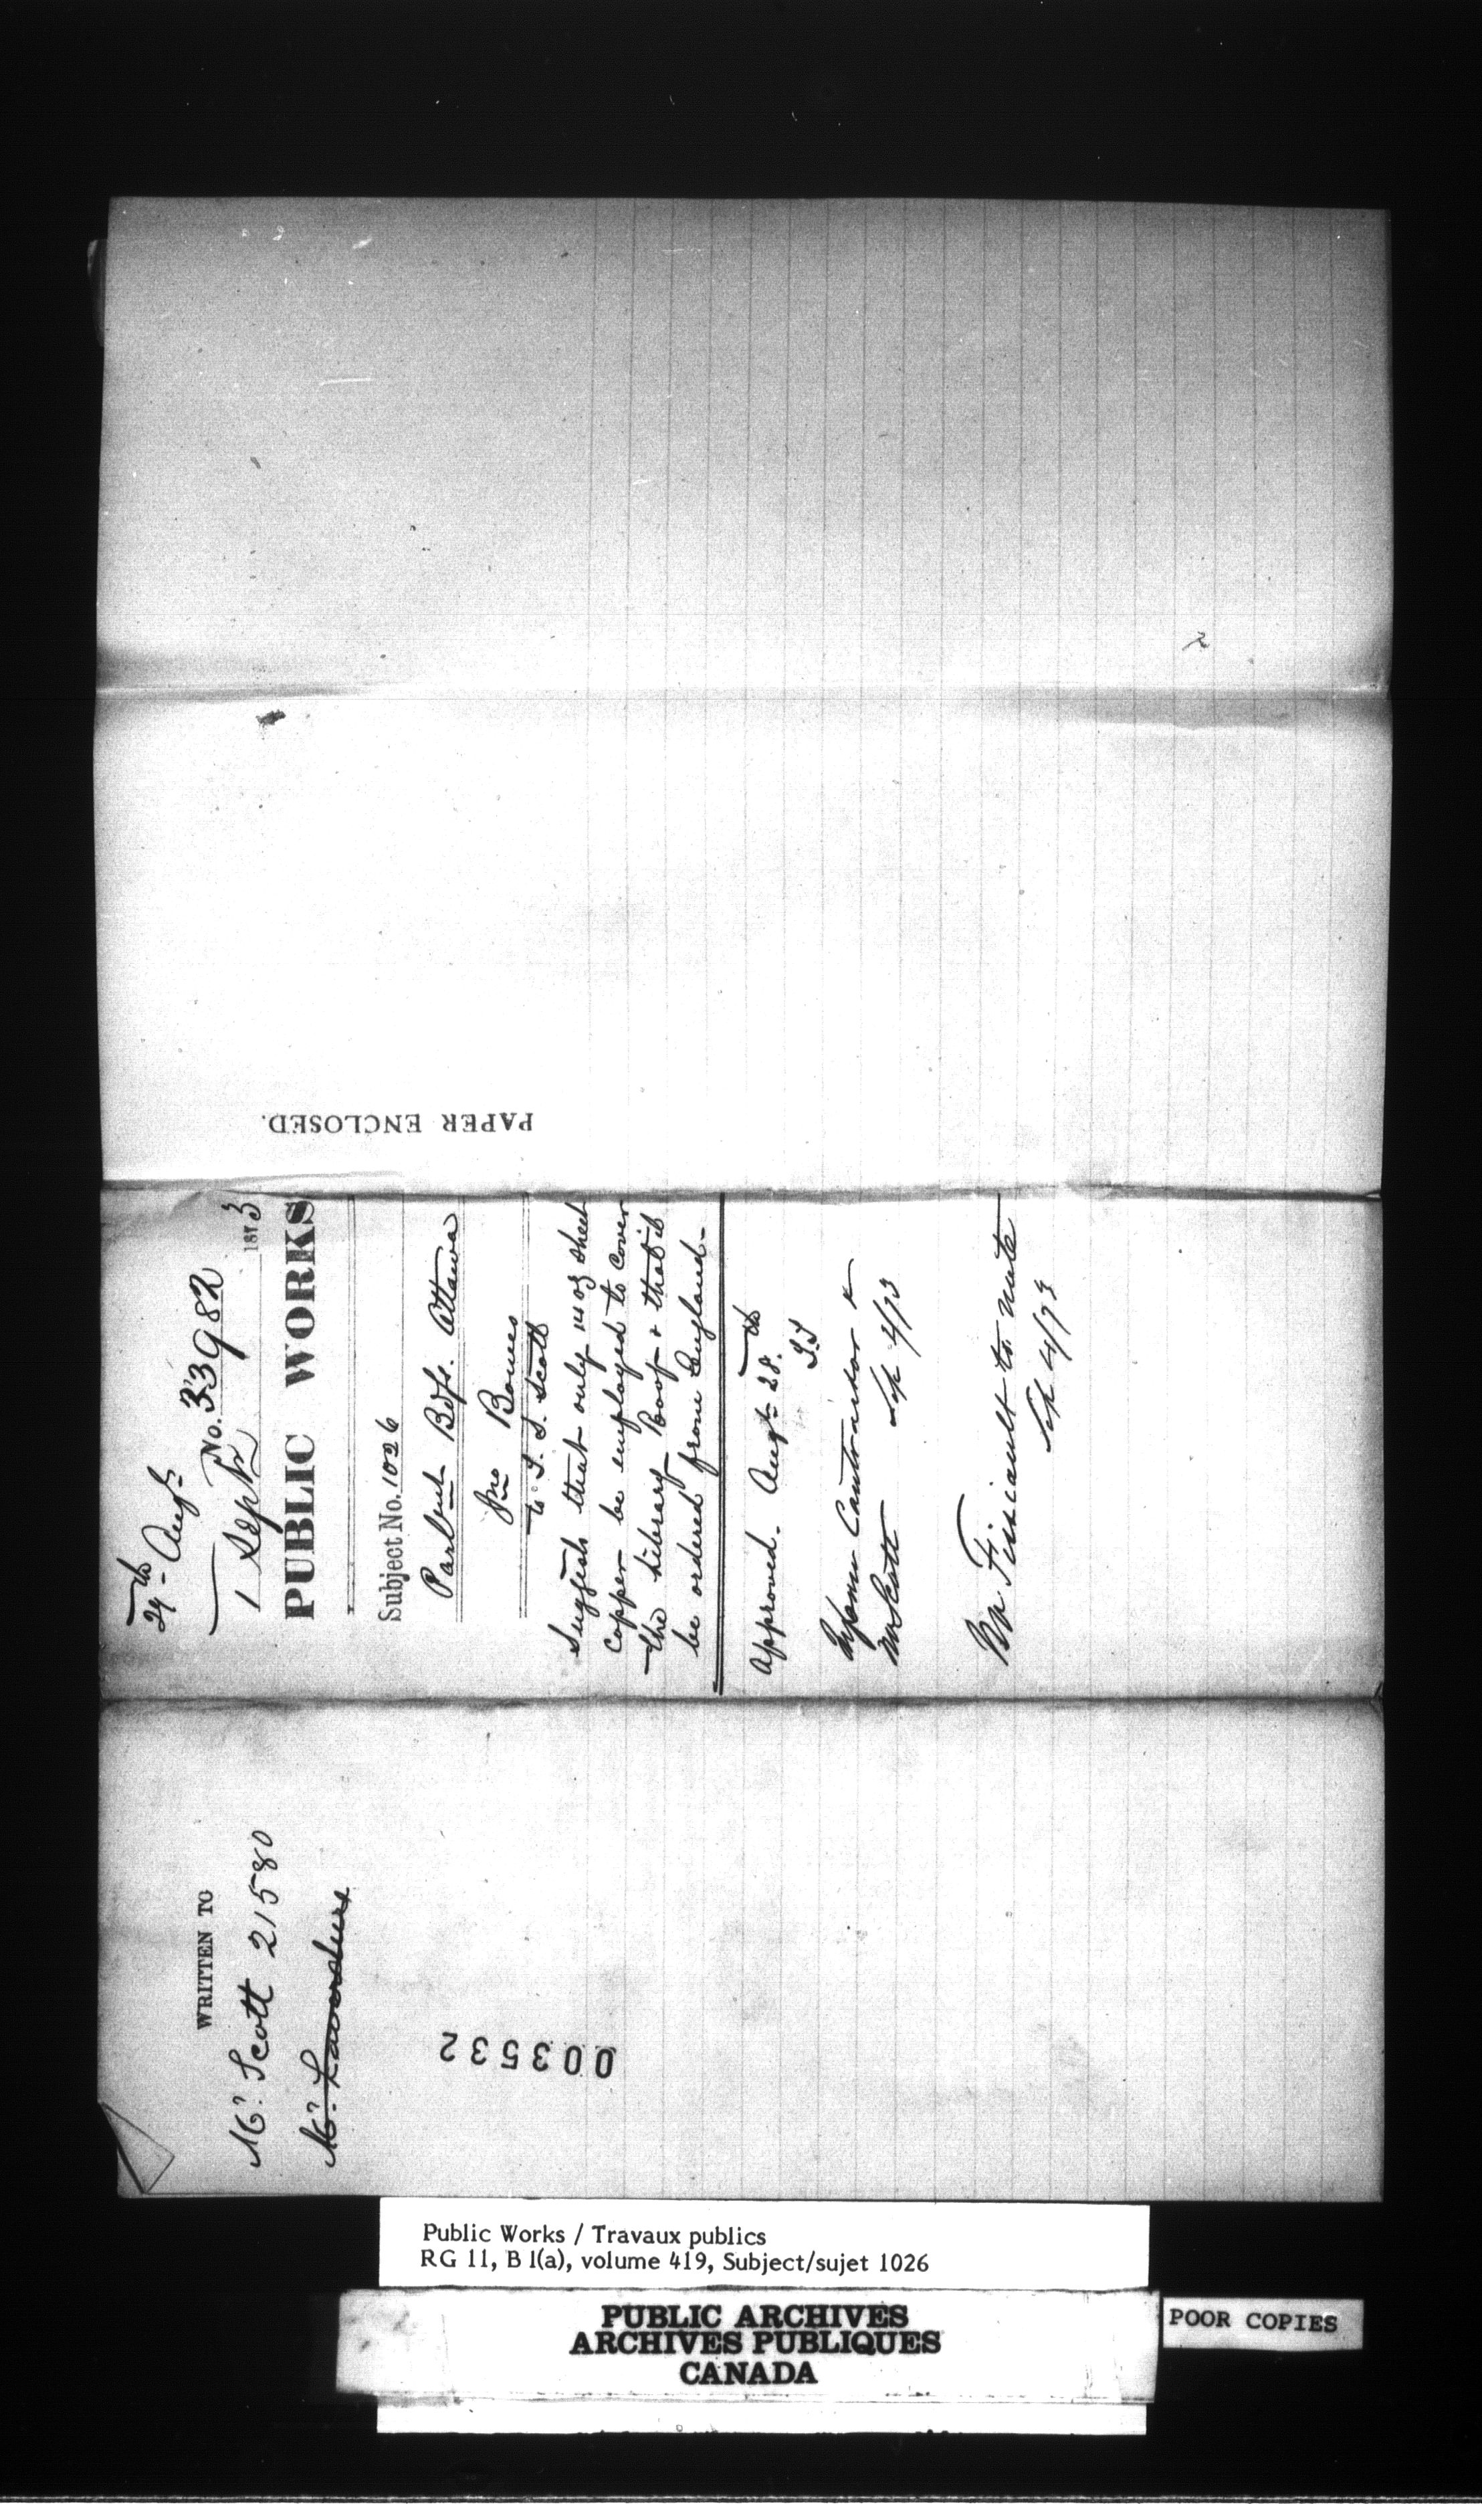 PAPER ENCLOSED.
24th Augt
No. 33982
1 Septr 1873
PUBLIC WORKS
Subject No. 1026
Parlnt Bdgs. Ottawa
Jno Bowes
to T. S. Scott
Suggests that only 14 oz sheet
copper be employed to cover
the Library Roof & that it
be ordered from England.
Approved. Augt 28th
Inform Contractor &
Mr Scott Sep 4/73
Mr Fissiault to note
Sep 4/73
WRITTEN TO
Mr. Scott 21580
Mr.
003532
Public Works / Travaux publics
RG 11, B 1(a), volume 419, Subject/sujet 1026
PUBLIC ARCHIVES
ARCHIVES PUBLIQUES
CANADA
POOR COPIES